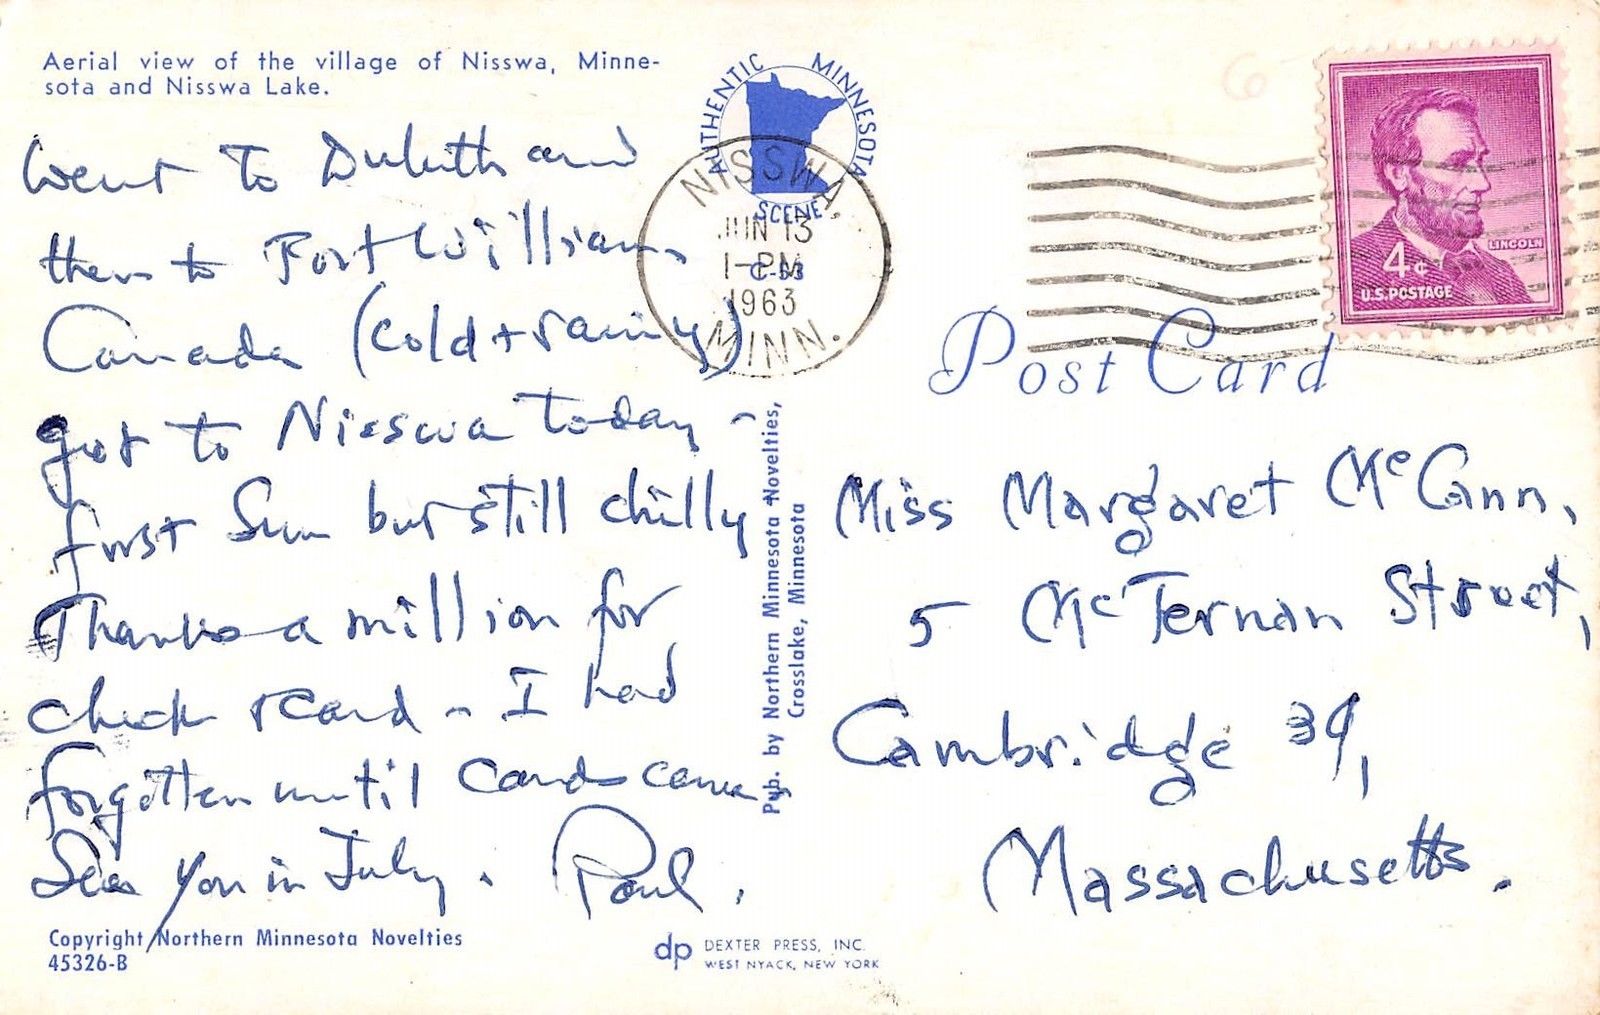 Aerial view of the village of Nisswa, Minne-
sota and Nisswa Lake.
Went to Duluth and
then to Fort William
Canada (cold + rainy)
got to Nisswa today -
first Sun but still chilly
Thanks a million for
check card - I had
forgotten until cards came
See you in July. Paul.
Copyright Northern Minnesota Novelties
45326-B
AUTHENTIC MINNESOTA
SCENE
C-53
NISSWA,
JUN 13
1-PM
1963
MINN.
Pub. by Northern Minnesota Novelties,
Crosslake, Minnesota
dp DEXTER PRESS, INC.
WEST NYACK, NEW YORK
6
LINCOLN
4¢
U.S. POSTAGE
Post Card
Miss Margaret McCann,
5 McTernan Street,
Cambridge 39,
Massachusetts.